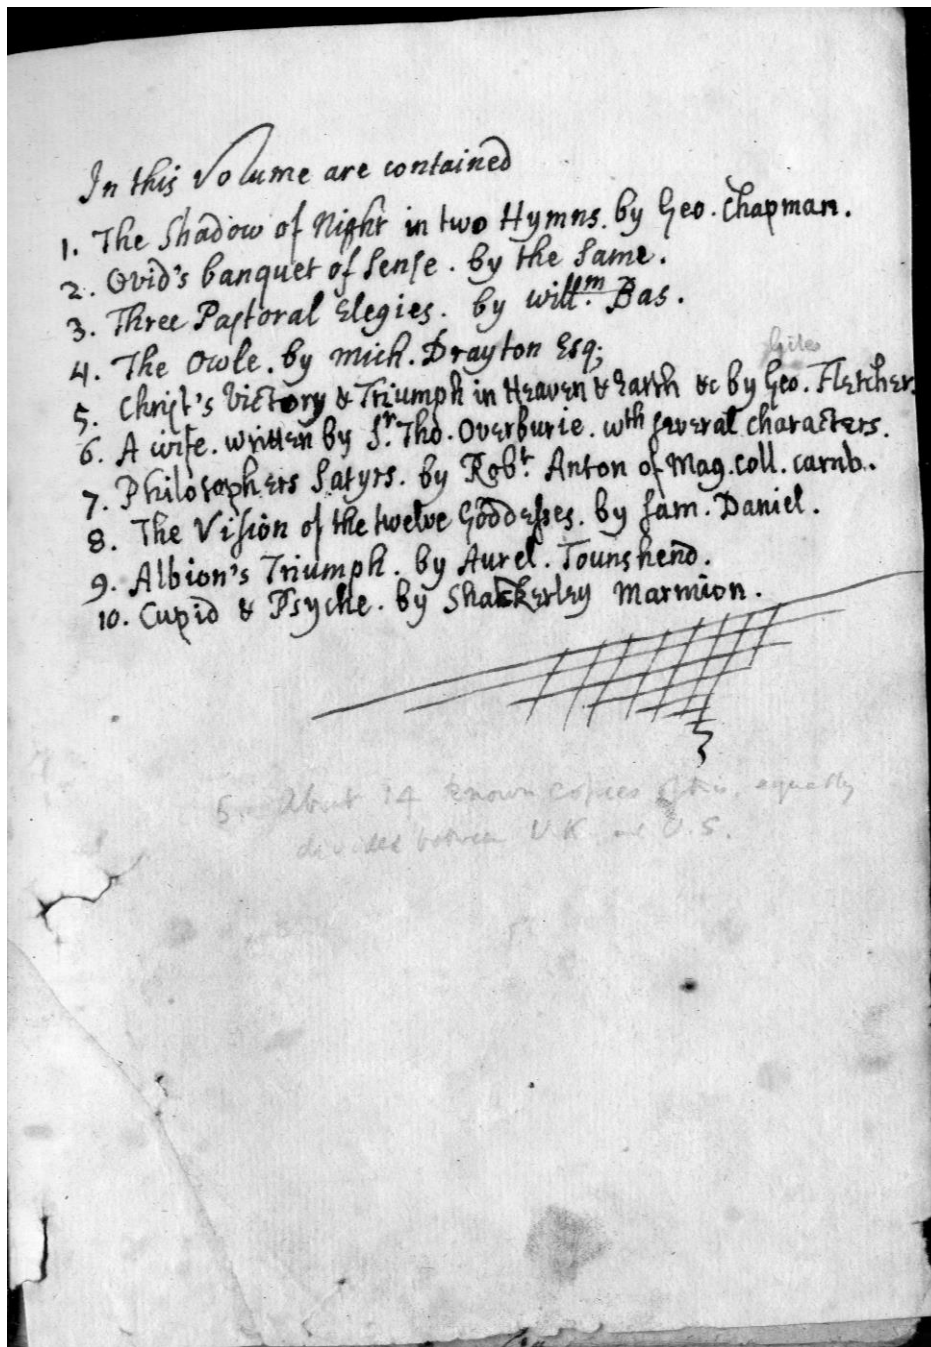 In this Volume are contained
1. The Shadow of Night in two Hymns. by Geo. Chapman.
2. Ovid's banquet of Sense. by the Same.
3. Three Pastoral Elegies. by Willm. Bas.
4. The Owle. by Mich. Drayton Esq;
Giles
5. Christ's Victory & Triumph in Heaven & Earth &c by Geo. Fletcher.
6. A wife. written by Sr. Tho. Overburie. wth several characters.
7. Philosophers Satyrs. by Robt Anton of Mag. coll. camb.
8. The Vision of the twelve Goddesses. by Sam. Daniel.
9. Albion's Triumph. by Aurel. Tounshend.
10. Cupid & Psyche. by Shackerley Marmion.
5. About 14 known copies of this, equally
divided between U.K. and U.S.